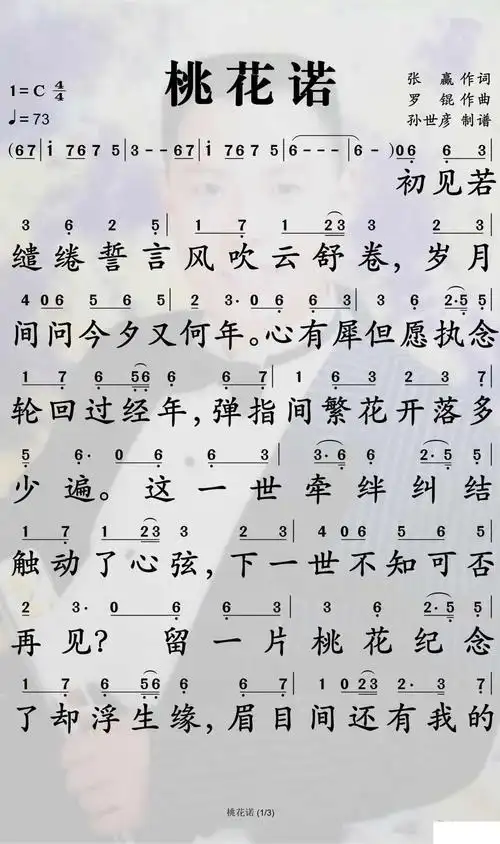 桃花诺
1=C 4/4
♩=73
张 赢 作词
罗 锟 作曲
孙世彦 制谱
(67|i 7675|3--67|i 7675|6---|6-)06 63|
初见若
3 6 2 5|1 7 1 23|3 23|
缱绻誓言风吹云舒卷,岁月
406 565|23·06 63|36 2·55|
间问今夕又何年。心有犀但愿执念
17 6 556 67|16 23 7|
轮回过经年,弹指间繁花开落多
5 6·06 63|3·66 2·5|
少遍。这一世牵绊纠结
17 1 23 3 23|406 565|
触动了心弦,下一世不知可否
2 3·0 6 63|36 2·55|
再见?留一片桃花纪念
17 6 556 67|1023 2·37|
了却浮生缘,眉目间还有我的
桃花诺 (1/3)